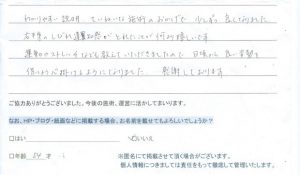 わかりやすい説明、ていねいな施術のおかげで少しずつ良くなりました。
右手のしびれ、運動が楽になれたことが何より嬉しいです。
運動やストレッチなども教えていただきましたので、日頃から良い姿勢を
保つよう心掛けるようになりました。感謝しております。
ご協力ありがとうございました。今後の施術、運営に活かしてまいります。
なお、HP・ブログ・紙面などに掲載する場合、お名前を載せてもよろしいでしょうか？
□はい
☑いいえ
□年齢 54 才
※匿名にて掲載させて頂く場合がございます。
個人情報につきましては責任をもって徹底して管理いたします。